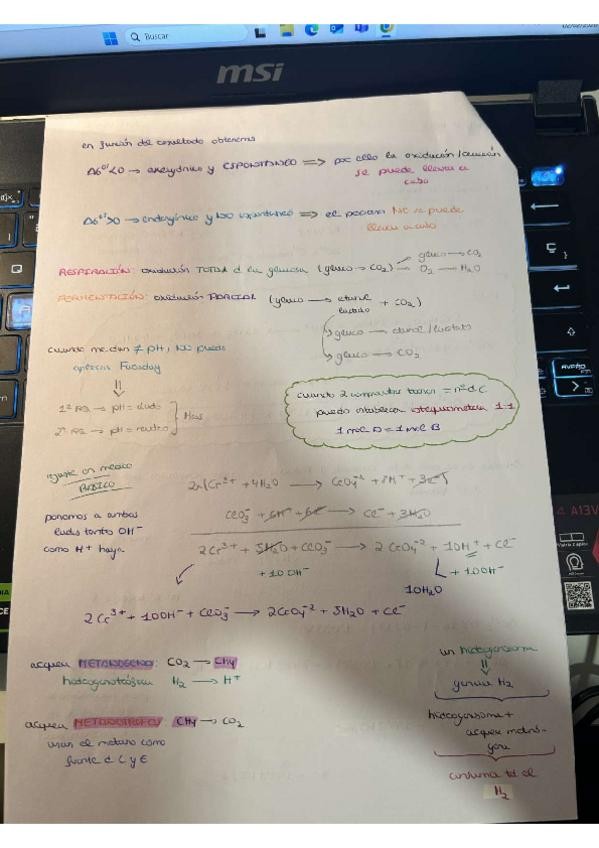 Buscar
msi
en función del resultado obtenemos
ΔG⁰'<0 → exergónico y ESPONTÁNEO ⇒ por ello la oxidación/reacción
se puede llevar a
cabo
ΔG⁰'>0 → endergónico y NO espontáneo ⇒ el proceso NO se puede
llevar a cabo
RESPIRACIÓN: oxidación TOTAL d la glucosa (gluco → CO₂)
gluco → CO₂
O₂ → H₂O
FERMENTACIÓN: oxidación PARCIAL (gluco → etanol + CO₂)
lactato
gluco → etanol/lactato
gluco → CO₂
cuando me dan ≠ pH, NO puedo
aplicar Faraday
⇓
1º PQ → pH = ácido
2º PQ → pH = neutro
Hess
cuando 2 compuestos tienen = nº d C
puedo establecer estequiometría 1:1
1 mol D = 1 mol B
ajuste en medio
BÁSICO
ponemos a ambos
lados tantos OH⁻
como H⁺ haya
2x(Cr³⁺ + 4H₂O → CrO₄⁻² + 8H⁺ + 3e⁻)
ClO₃⁻ + 6H⁺ + 6e⁻ → Cl⁻ + 3H₂O
2Cr³⁺ + 5H₂O + ClO₃⁻ → 2 CrO₄⁻² + 10H⁺ + Cl⁻
+ 10 OH⁻
+ 10OH⁻
10H₂O
2Cr³⁺ + 10OH⁻ + ClO₃⁻ → 2CrO₄⁻² + 5H₂O + Cl⁻
arquea METANÓGENO: CO₂ → CH₄
hidrogenotrófica H₂ → H⁺
arquea METANOTROFO CH₄ → CO₂
usan el metano como
fuente d C y E
un hidrogenosoma
⇓
genera H₂
hidrogenosoma +
arquea metanó-
gena
consume td el
H₂